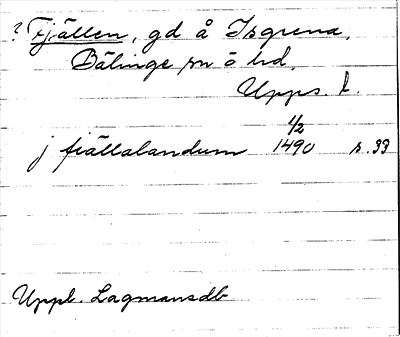 ? Fjällen, gd å Isgrena,
Bälinge sn o hd,
Upps. l.
j fiällalandum 1/2 1490 s. 33
Uppl. Lagmansdb